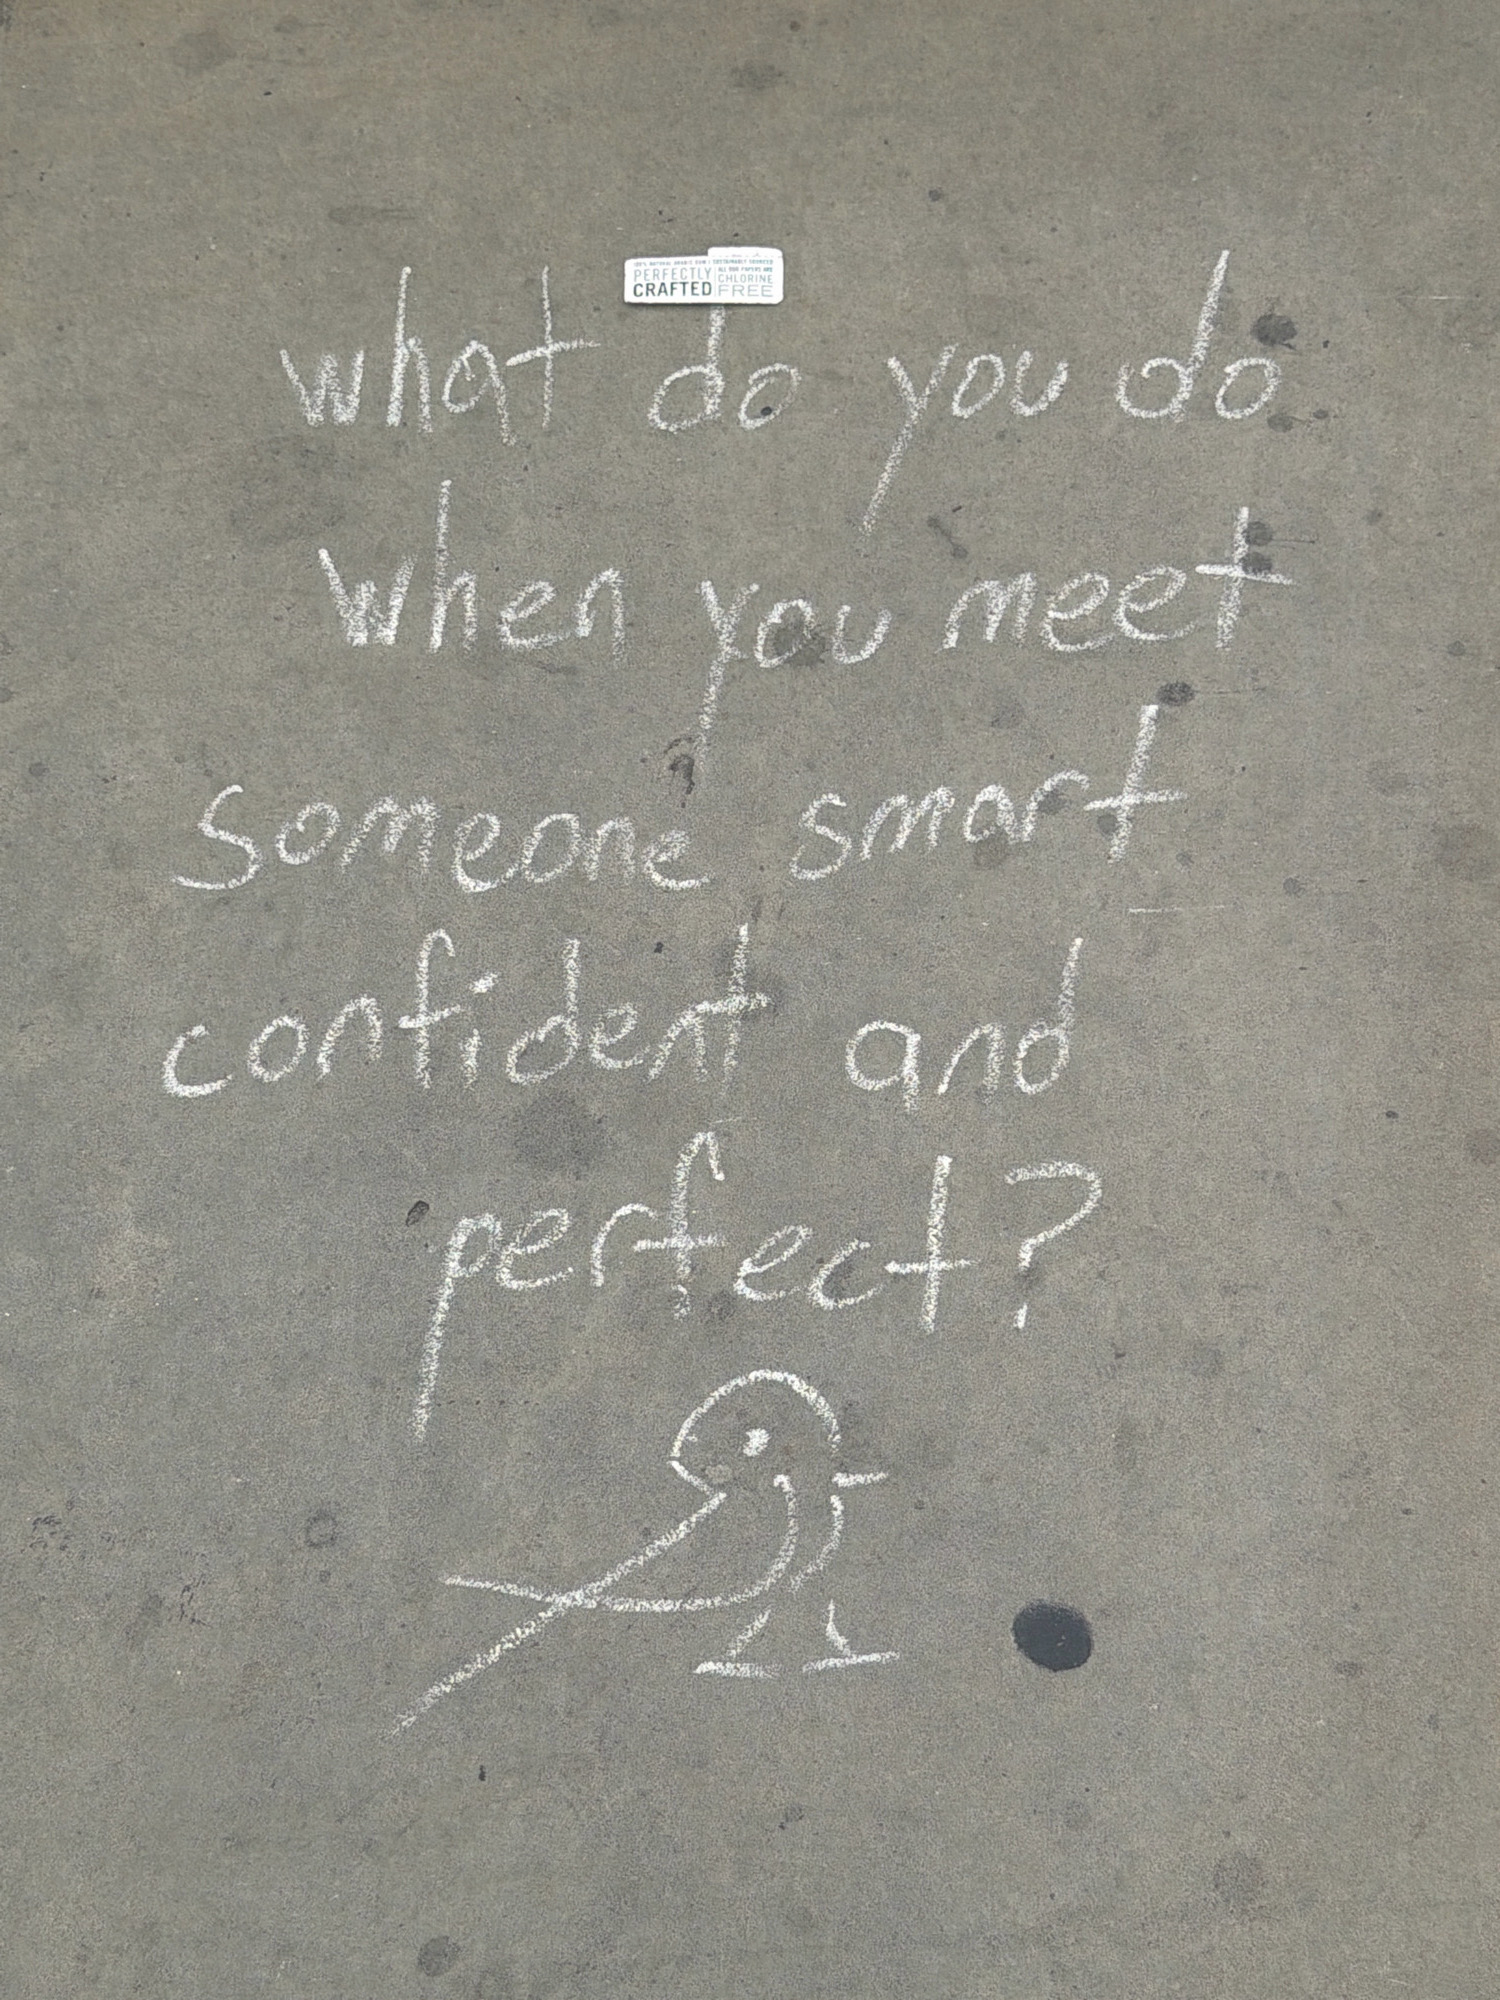 100% NATURAL ARABIC GUM | SUSTAINABLY SOURCED
PERFECTLY CRAFTED
ALL OUR PAPERS ARE CHLORINE FREE
what do you do
when you meet
someone smart
confident and
perfect?